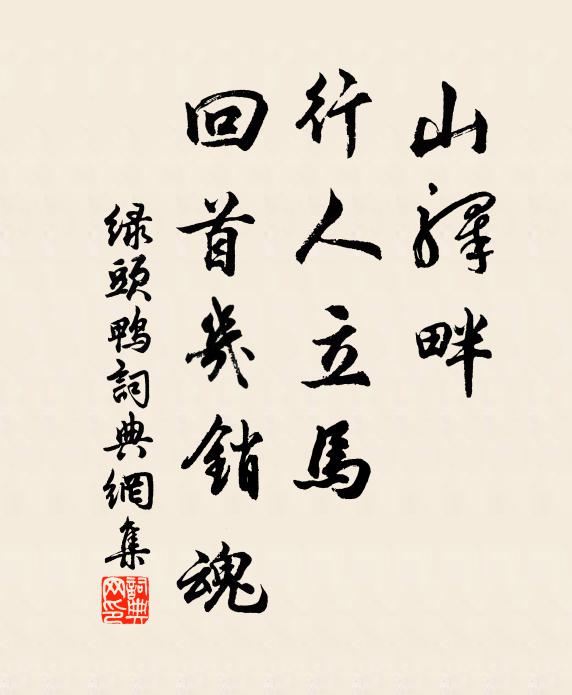 山驛畔
行人立馬
回首幾銷魂
绿頭鴨詞典網集
詞典網印